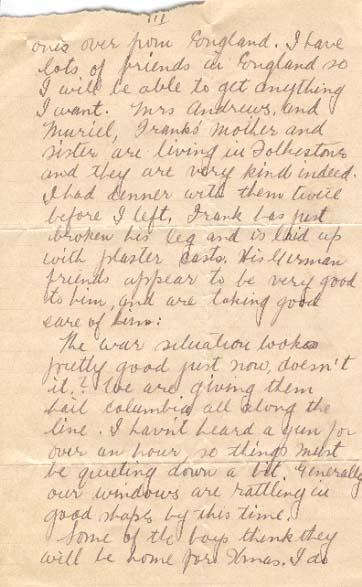 III
ones over from England. I have
lots of friends in England so
I will be able to get anything
I want. Mrs Andrews, and
Muriel, Frank's mother and
sister are living in Folkestone
and they are very kind indeed.
I had denner with them twice
before I left. Frank has just
broken his leg and is laid up
with plaster casts. His German
friends appear to be very good
to him, and are taking good
care of him:
The war situation looks
pretty good just now, doesn't
it? We are giving them
hail columbia all along the
line. I havn't heard a gun for
over an hour, so things must
be quieting down a bit. Generally
our windows are rattling in
good shape by this time.
Some of the boys think they
will be home for Xmas. I do